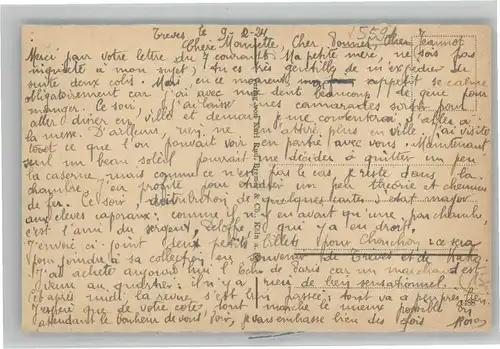 Treves le 9-2-24
1559
Chère Monnette, Cher Cher Jeannot
Merci pour votre lettre du 7 courant. Ma petite mère, ne sois pas
inquiète à mon sujet; tu es très gentille de m'expédier de
suite deux colis. Mais en ce moment mon appétit se calme
obligatoirement car j'ai avec ma dent beaucoup de gêne pour
manger. Ce soir, j'ai laissé mes camarades sortir pour
aller dîner en ville et demain je me contenterai d'aller à
la messe. D'ailleurs, rien ne m'attire plus en ville, j'ai visité
tout ce que l'on pouvait voir en partie avec vous. Maintenant
seul un beau soleil pourrait me décider à quitter un peu
la caserne, mais comme ce n'est pas le cas, je reste dans la
chambre. J'en profite pour un peu théorie et chemins
de fer. Ce soir, distribution de quelques cartes état major
aux élèves caporaux: comme il n'y en avait qu'une par chambre
c'est l'ami du sergent, qui l'a en droit.
J'envoie ci joint deux petits billets pour Chouchou ce sera
pour joindre à sa collection en souvenir de Treves et de
J'ai acheté aujourd'hui l'écho de Paris car un marchand est
venu au quartier: il n'y a rien de bien sensationnel.
Cet après midi la revue s'est bien passée; tout va à peu près bien.
J'espère que de votre côté tout marche le mieux possible
attendant le bonheur de vous voir, je vous embrasse bien des fois